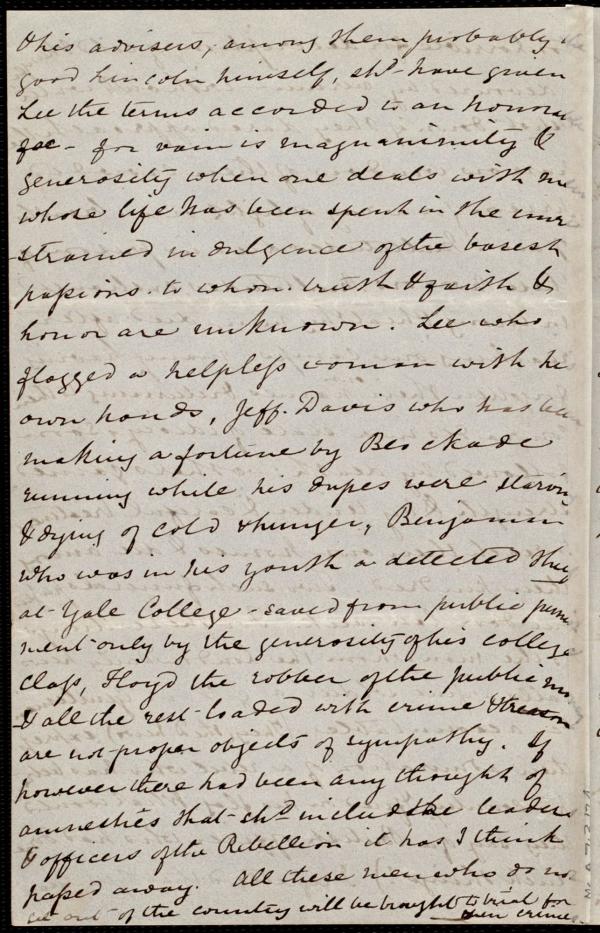 & his advisers, among them probably
good Lincoln himself, shd. have given
Lee the terms accorded to an honora
foe - for vain is magnanimity &
generosity when one deals with me
whose life has been spent in the unre
-strained indulgence of the basest
passions. to whom. truth & faith &
honor are unknown. Lee who
flogged a helpless woman with hi
own hands, Jeff. Davis who has bee
making a fortune by Blockade
running while his dupes were starvin
& dying of cold & hunger, Benjamin
who was in his youth a detected thie
at Yale College - saved from public punis
ment only by the generosity of his college
class, Floyd the robber of the public mo
& all the rest loaded with crime & treason
are not proper objects of sympathy. If
however there had been any thought of
amnesties that shd include the leaders
& officers of the Rebellion it has I think
passed away. All these men who do no
get out of the country will be brought to trial for
their crimes